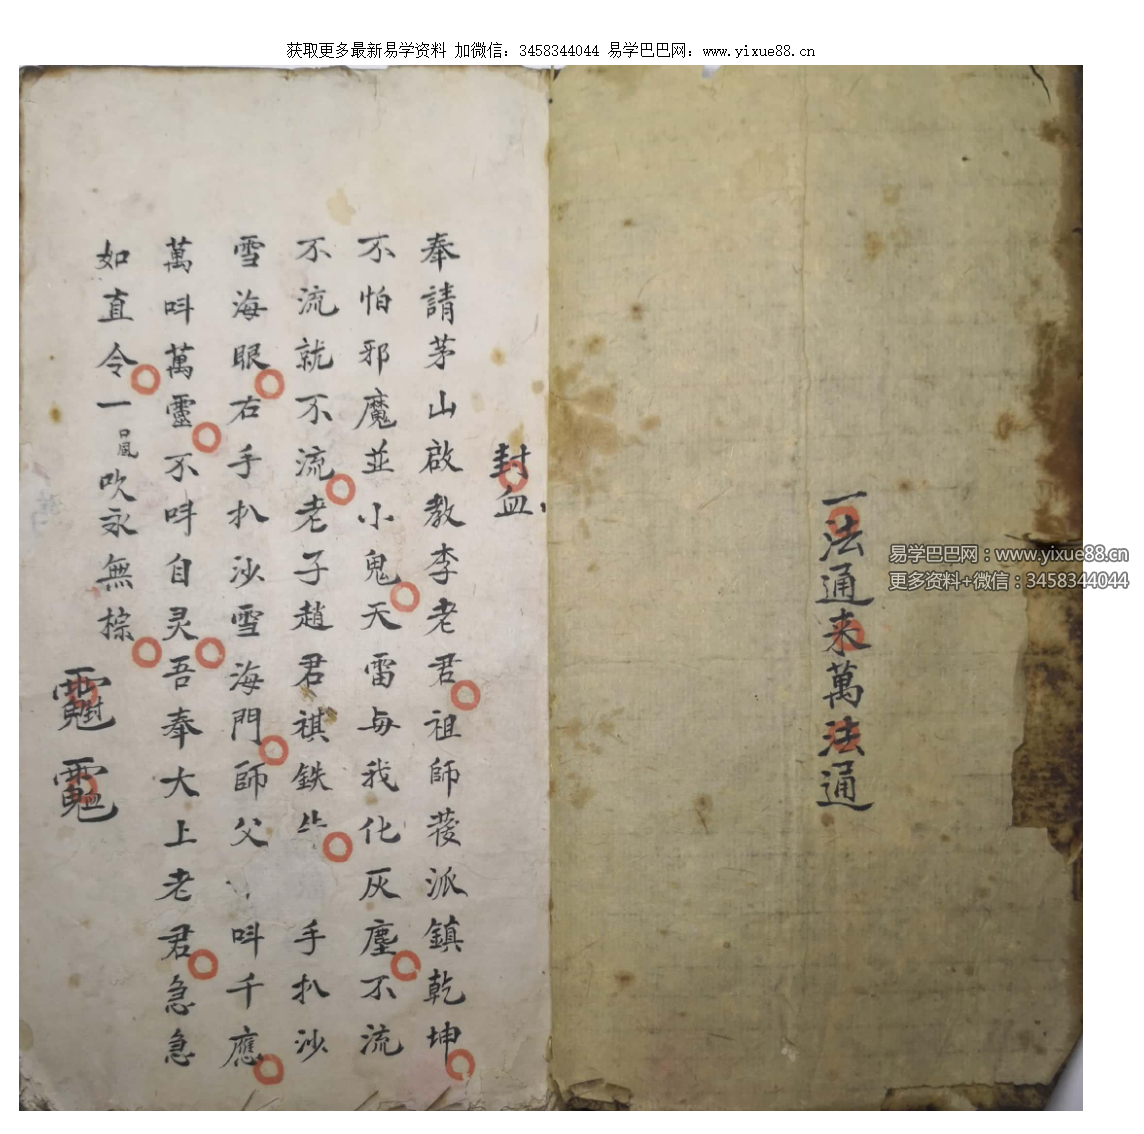 获取更多最新易学资料 加微信：3458344044 易学巴巴网：www.yixue88.cn
一法通来萬法通
易学巴巴网：www.yixue88.cn
更多资料+微信：3458344044
封血
奉請茅山啟教李老君祖師蓌派鎮乾坤
不怕邪魔並小鬼天雷与我化灰塵不流
不流就不流老子趙君祺鉄 手扒沙
雪海眼右手扒沙雪海門師父 呌千應
萬呌萬靈不呌自灵吾奉大上老君急急
如直令一 吹永無棕